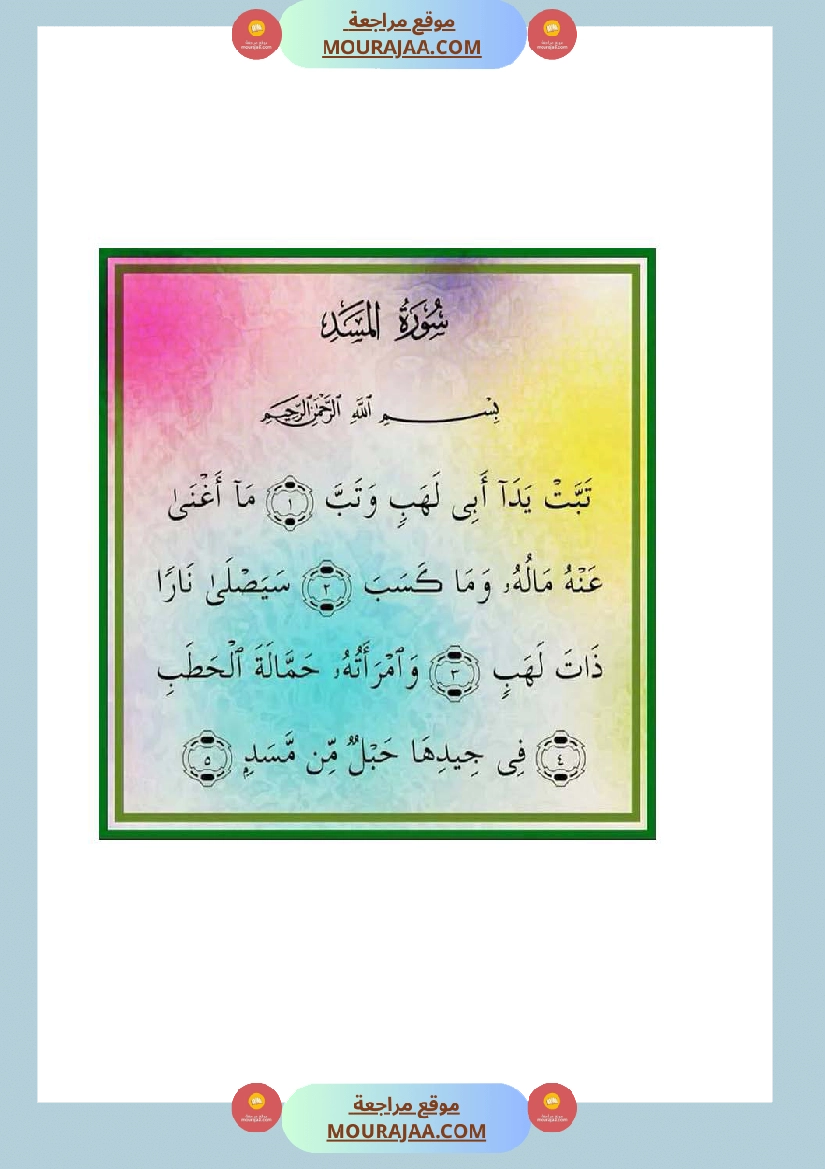 موقع مراجعة
MOURAJAA.COM
سُورَةُ المَسَدِ
بِسْمِ اللَّهِ الرَّحْمَٰنِ الرَّحِيمِ
تَبَّتْ يَدَآ أَبِى لَهَبٍ وَتَبَّ ١ مَآ أَغْنَىٰ
عَنْهُ مَالُهُۥ وَمَا كَسَبَ ٢ سَيَصْلَىٰ نَارًا
ذَاتَ لَهَبٍ ٣ وَٱمْرَأَتُهُۥ حَمَّالَةَ ٱلْحَطَبِ
٤ فِى جِيدِهَا حَبْلٌ مِّن مَّسَدٍ ٥
موقع مراجعة
MOURAJAA.COM